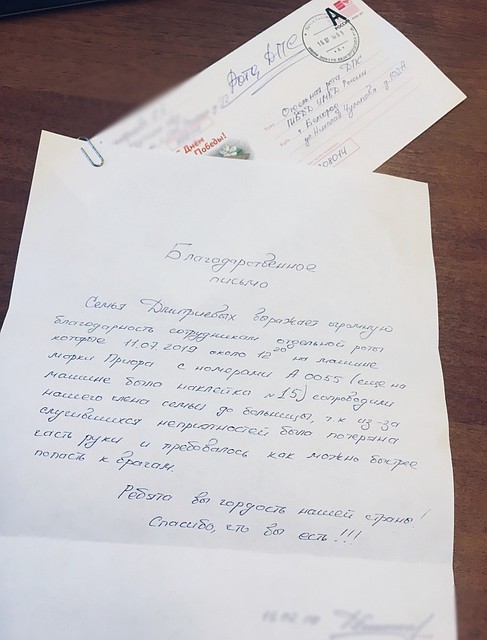 Рота ДПС
А
РОССИЯ
С Днём
Победы!
Отдельная рота ДПС
ГИБДД УМВД России
г. Белгород
308014
Благодарственное
письмо
Семья Дмитриевых выражает огромную
благодарность сотрудникам отдельной роты
которые 11.07.2019 около 12²⁰ на машине
марки Приора с номерами А 0055 (еще на
машине была наклейка №15) сопроводили
нашего члена семьи до больницы, т.к из-за
случившихся неприятностей была потеряна
часть руки и требовалось как можно быстрее
попасть к врачам.
Ребята вы гордость нашей страны!
Спасибо, что вы есть!!!